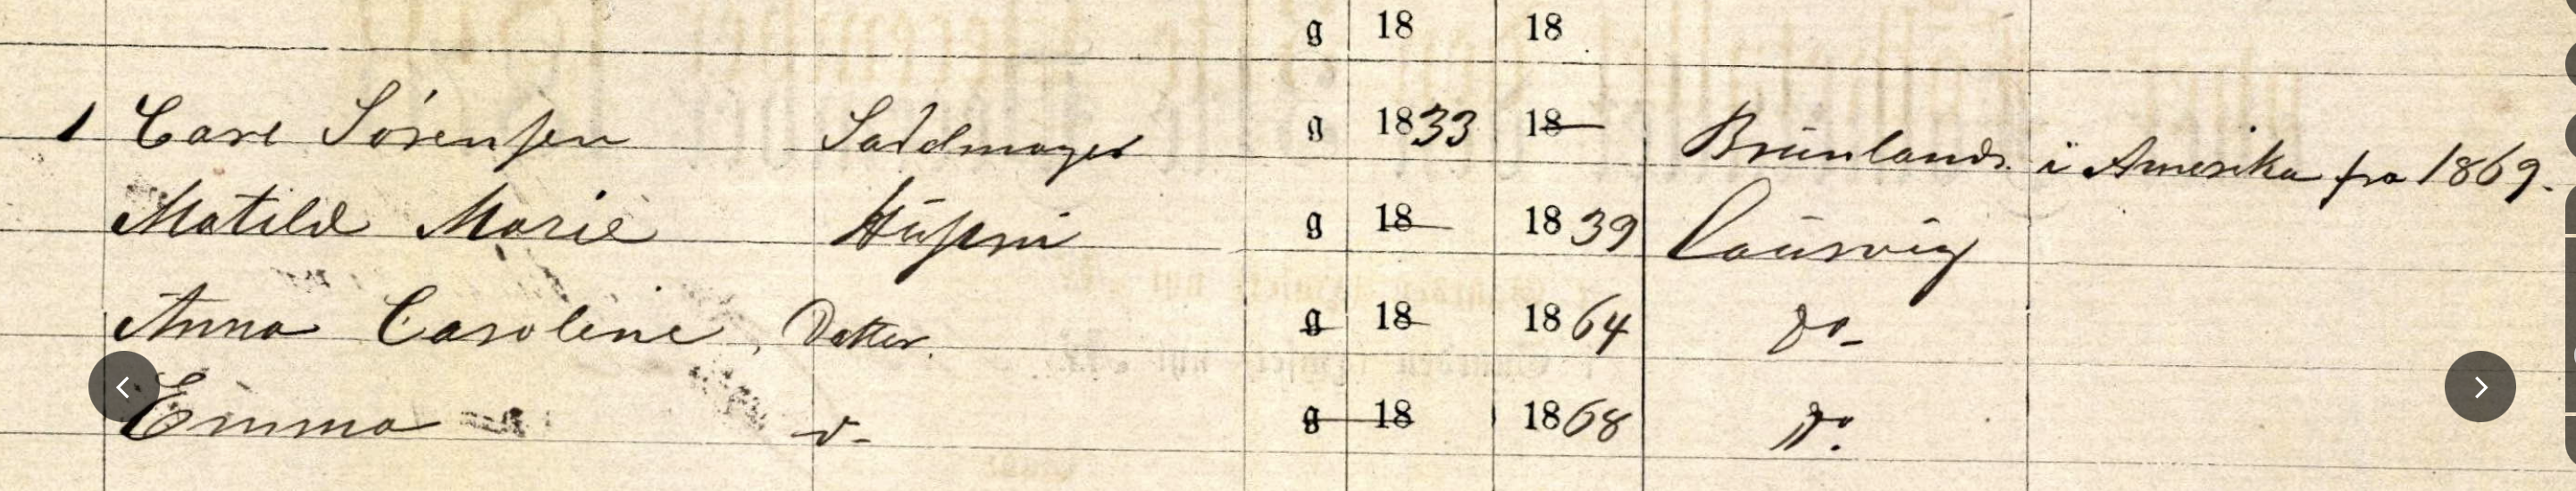 g 18 18
1 Carl Sörensen Sadelmager g 1833 18 Brunlands. i Amerika fra 1869.
Matild Marie Hustru g 18 1839 Laurvig
Anna Caroline, Datter. g 18 1864 do-
Emma d- g 18 1868 do.